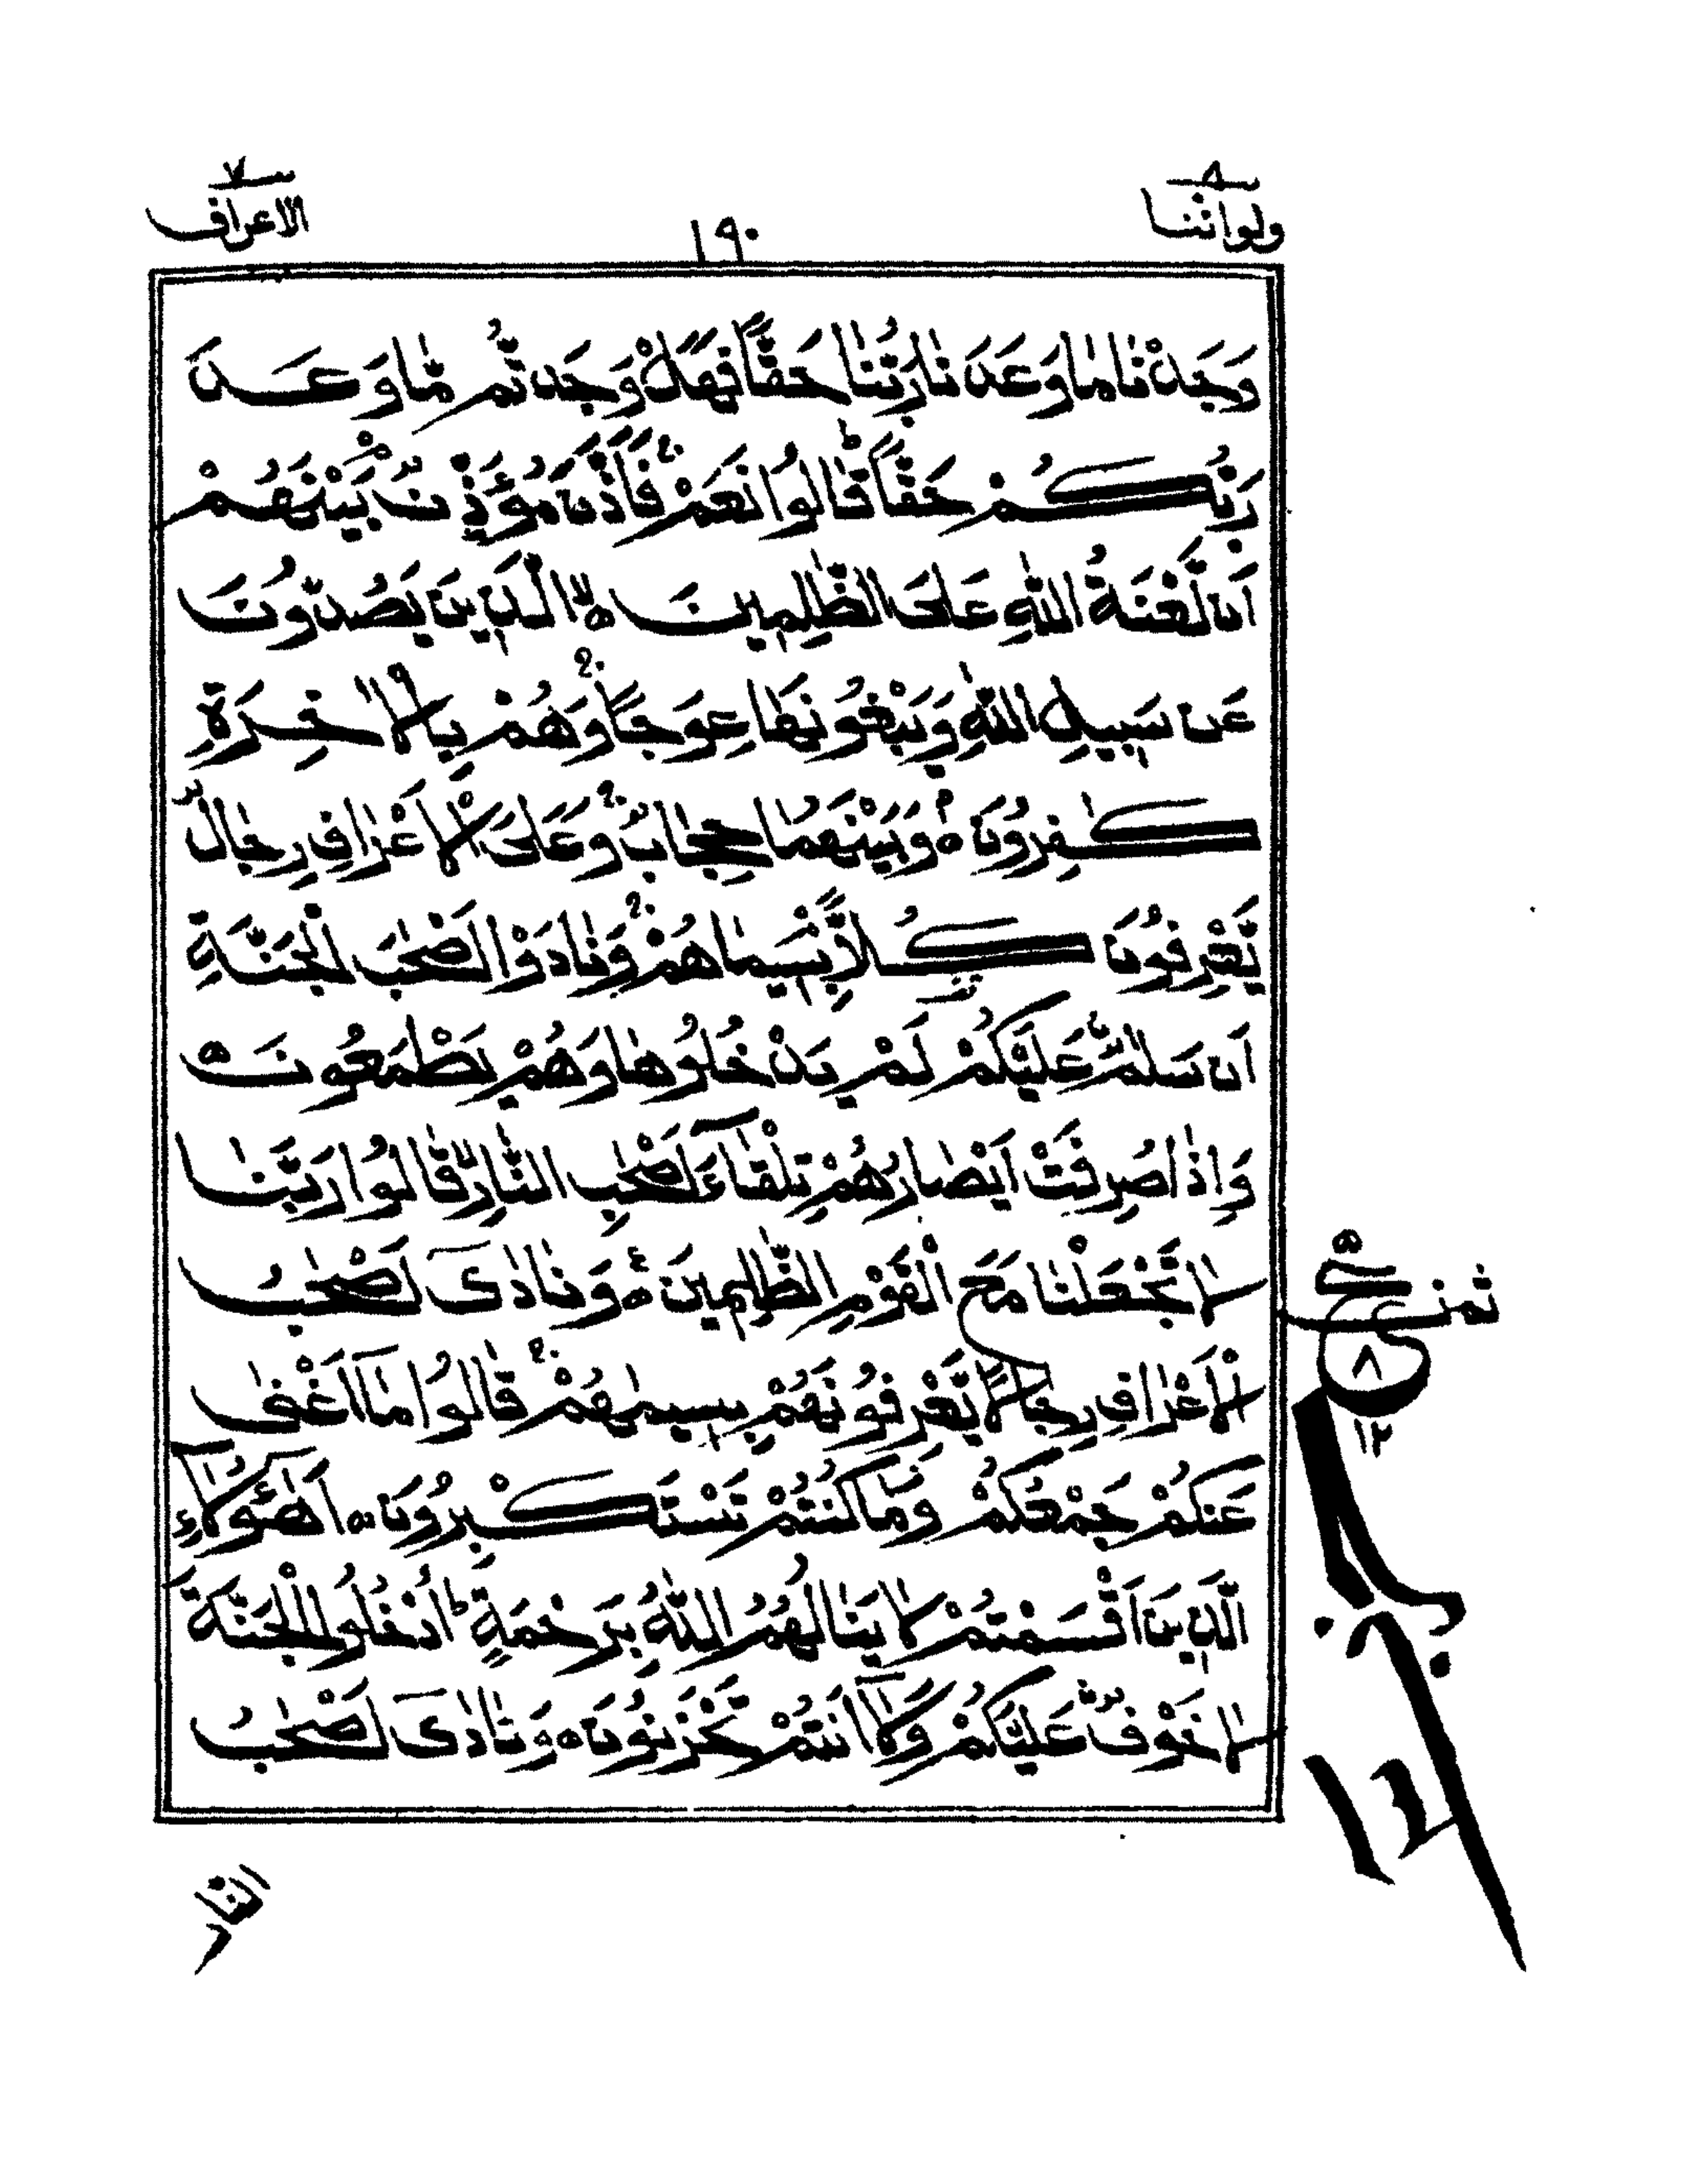 ولواننا ٨
١٩٠
الاعراف ٧
وَجَدْنَا مَا وَعَدَنَا رَبُّنَا حَقًّا فَهَلْ وَجَدتُّمْ مَّا وَعَدَ
رَبُّكُمْ حَقًّا ؕ قَالُوْا نَعَمْ ۚ فَاَذَّنَ مُؤَذِّنٌۢ بَيْنَهُمْ
اَنْ لَّعْنَةُ اللّٰهِ عَلَى الظّٰلِمِيْنَ ۙ الَّذِيْنَ يَصُدُّوْنَ
عَنْ سَبِيْلِ اللّٰهِ وَيَبْغُوْنَهَا عِوَجًا ۚ وَهُمْ بِالْاٰخِرَةِ
كٰفِرُوْنَ ۘ وَبَيْنَهُمَا حِجَابٌ ۚ وَعَلَى الْاَعْرَافِ رِجَالٌ
يَّعْرِفُوْنَ كُلًّا بِسِيْمَاهُمْ ۚ وَنَادَوْا اَصْحٰبَ الْجَنَّةِ
اَنْ سَلٰمٌ عَلَيْكُمْ لَمْ يَدْخُلُوْهَا وَهُمْ يَطْمَعُوْنَ ٥
وَاِذَا صُرِفَتْ اَبْصَارُهُمْ تِلْقَآءَ اَصْحٰبِ النَّارِ ۙ قَالُوْا رَبَّنَا
لَا تَجْعَلْنَا مَعَ الْقَوْمِ الظّٰلِمِيْنَ ۧ وَنَادٰى اَصْحٰبُ
الْاَعْرَافِ رِجَالًا يَّعْرِفُوْنَهُمْ بِسِيْمٰهُمْ ۚ قَالُوْا مَآ اَغْنٰى
عَنْكُمْ جَمْعُكُمْ وَمَا كُنْتُمْ تَسْتَكْبِرُوْنَ ۝ اَهٰٓؤُلَآءِ
الَّذِيْنَ اَقْسَمْتُمْ لَا يَنَالُهُمُ اللّٰهُ بِرَحْمَةٍ ؕ اُدْخُلُوا الْجَنَّةَ
لَا خَوْفٌ عَلَيْكُمْ وَلَآ اَنْتُمْ تَحْزَنُوْنَ ۝ وَنَادٰى اَصْحٰبُ
ثمن
ع
٨
١٢
النار